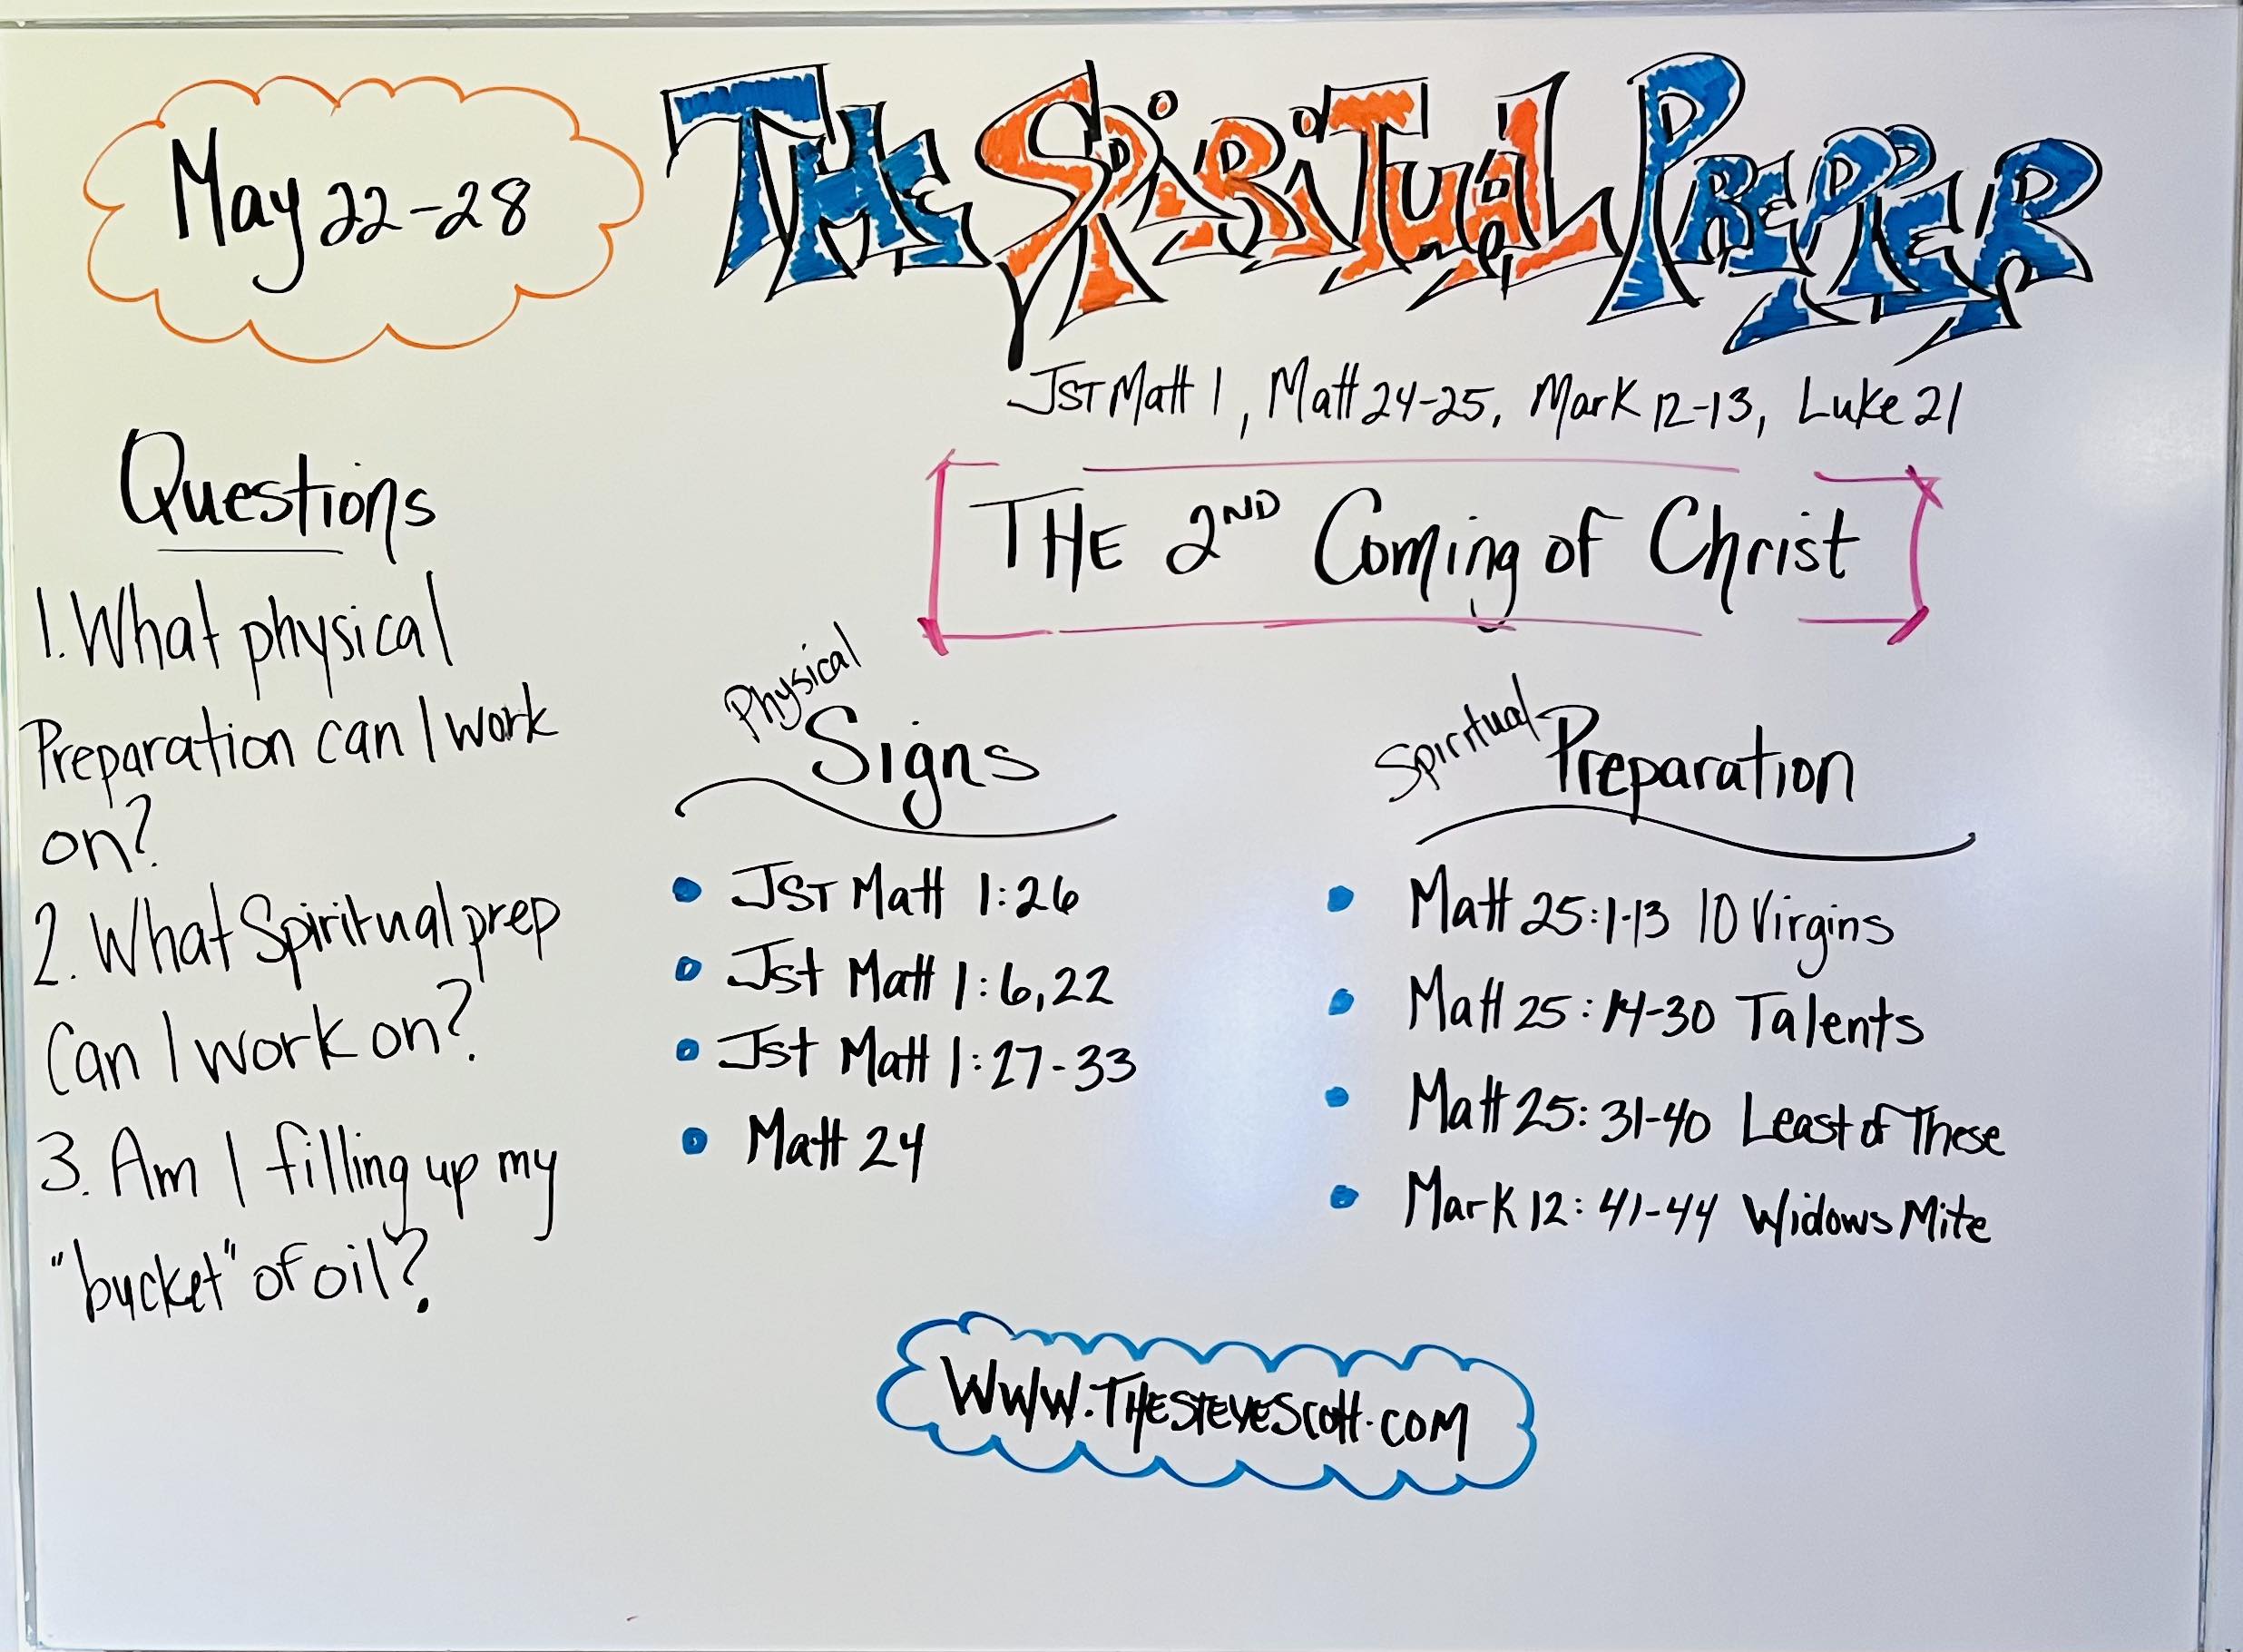 May 22-28
THE SPiRiTUAL PREPPER
JST Matt 1, Matt 24-25, Mark 12-13, Luke 21
THE 2ND Coming of Christ
Questions
1. What physical
Preparation can I work
on?
2. What Spiritual prep
Can I work on?
3. Am I filling up my
"bucket" of oil?
Physical
Signs
• JST Matt 1:26
• Jst Matt 1:6,22
• Jst Matt 1:27-33
• Matt 24
Spiritual
Preparation
• Matt 25:1-13 10 Virgins
• Matt 25:14-30 Talents
• Matt 25:31-40 Least of These
• Mark 12:41-44 Widows Mite
WWW.THESTEVESCOTT.COM